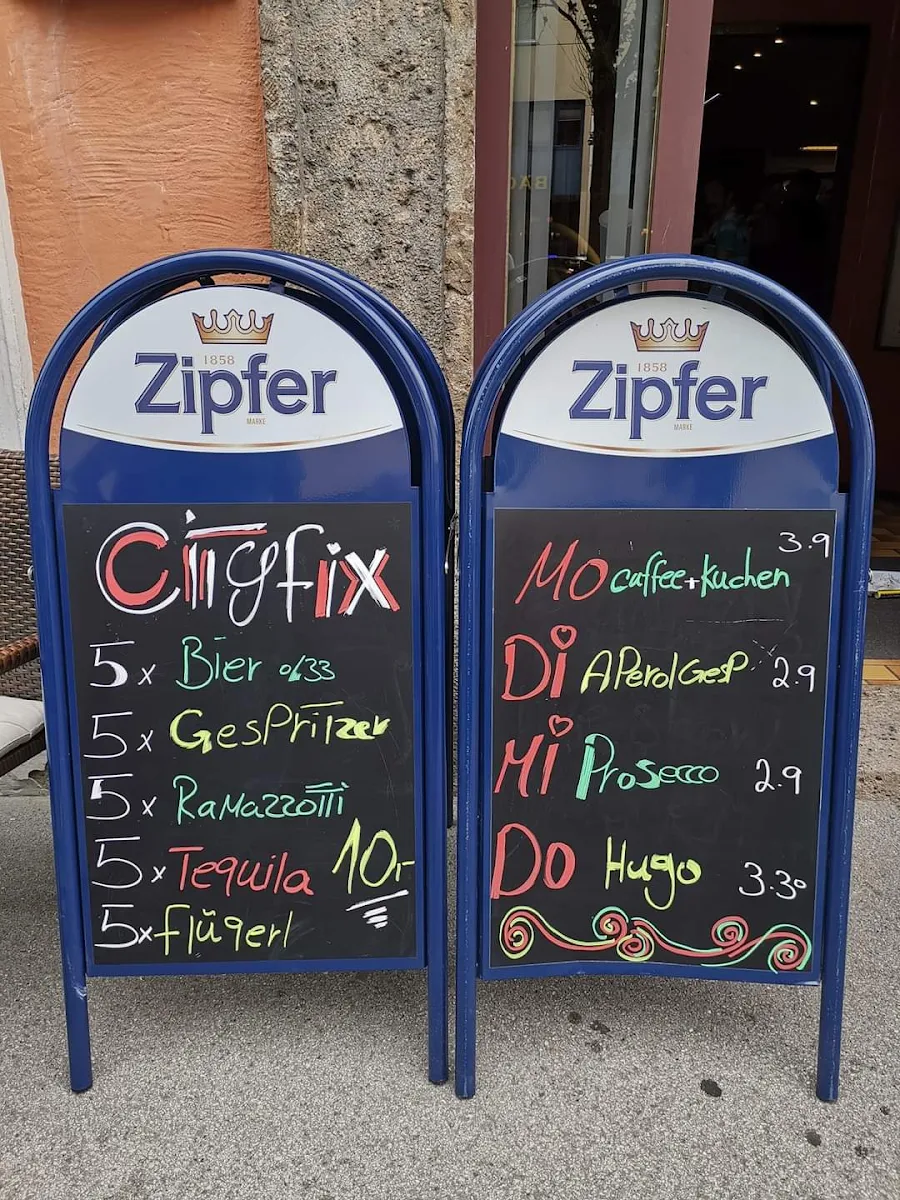 1858
Zipfer
MARKE
Cityfix
5x Bier 0/33
5x Gespritzer
5x Ramazzotti
5x Tequila 10,-
5x flügerl
1858
Zipfer
MARKE
3.9
MO caffee+kuchen
Di APerolGesP 2.9
Mi Prosecco 2.9
Do Hugo 3.30